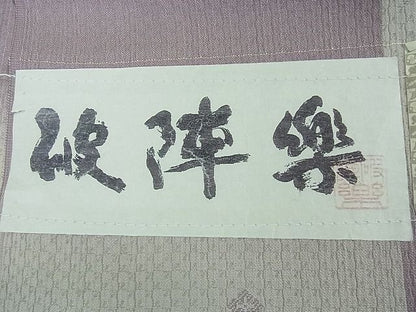 破陣樂